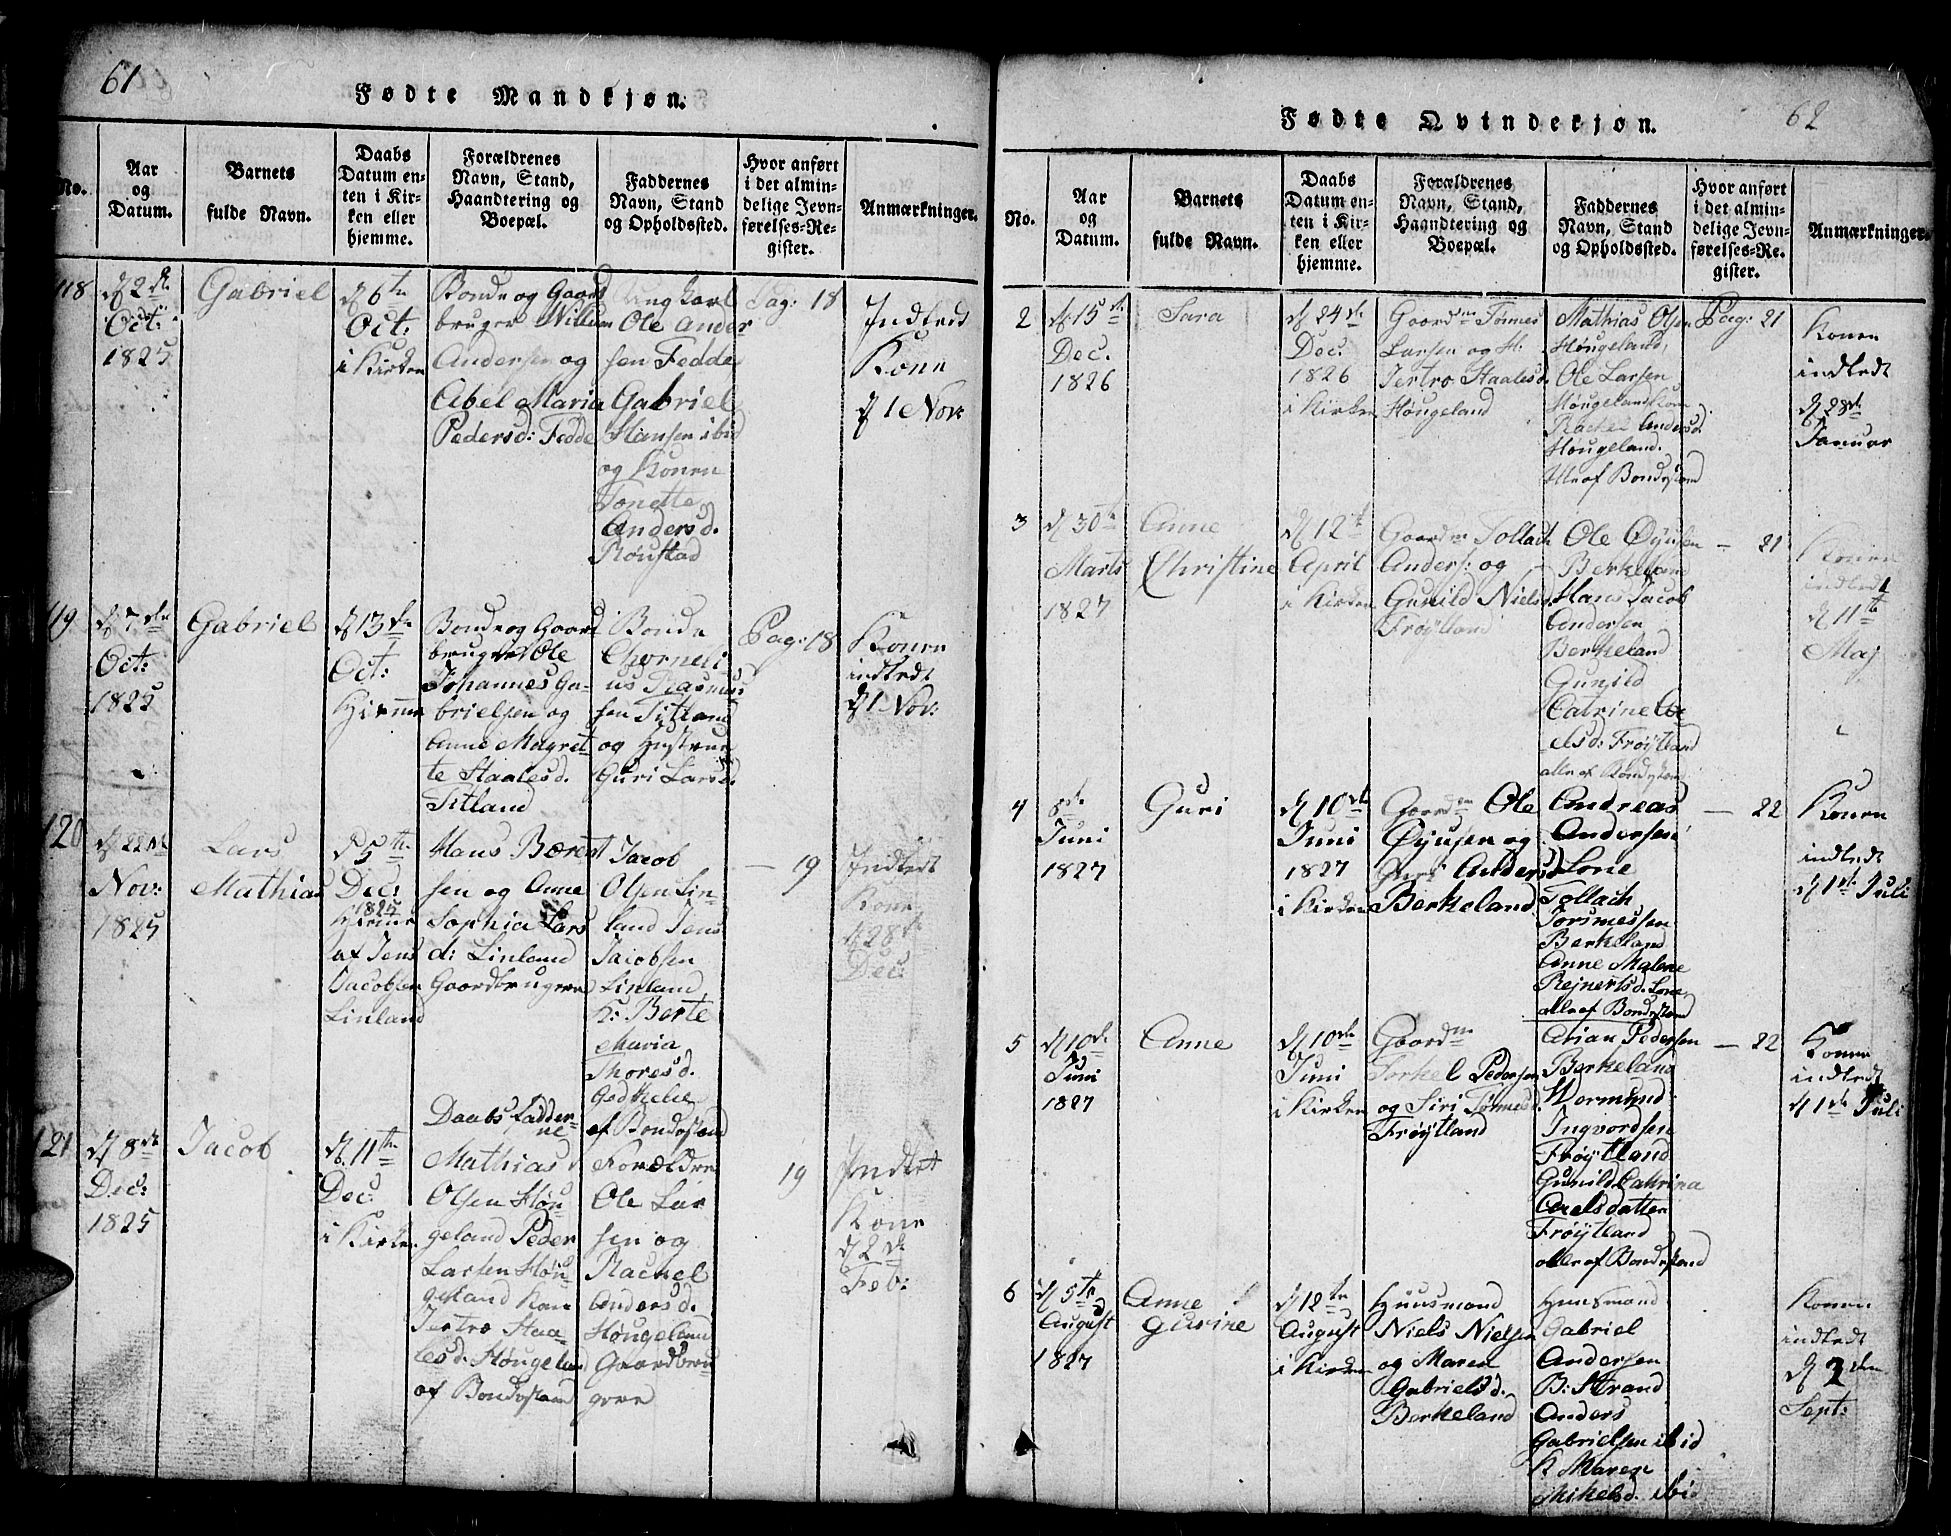 61
Fødte Mandkjøn.
No.
Aar
og
Datum.
Barnets
fulde Navn.
Daabs
Datum en-
ten i Kir-
ken eller
hjemme.
Forældrenes
Navn, Stand,
Haandtering og
Boepæl.
Faddernes
Navn, Stand
og Opholdssted.
Hvor anført
i det almin-
delige Jevn-
førelses-Re-
gister.
Anmærkninger.
118
d 2de
Oct:
1825
Gabriel
d 6te
Oct:
i Kirken
Bonde og Gaard
bruger Willum
Andersen og
Abel Maria
Pedersd: Fedde
Ungkarl
Ole Ander
sen Fedde
Gabriel
Hansen ibid
og Konen
Tonette
Andersd.
Røustad
Pag: 18
Indledt
Kone
d 1 Nov:
119
d 7de
Oct:
1825
Gabriel
d 13de
Oct:
Hiemme
Bonde og Gaard
bruger Ole
Johannes Ga-
brielsen og
Anne Magret-
te Staalesd.
Titland
Bonde
Chorneli
us Rasmus
sen Titland
og Hustrue
Guri Larsd.
Pag: 18
Konen
indledt
d 1 Nov:
120
d 22de
Nov:
1825
Lars
Mathias
d 5te
Dec:
1825
Hieme
af Jens
Jacobsen
Linland
Hans Bærent
sen og Anne
Sophia Lars
d: Linland
Gaardbrugere
Jacob
Olsen Lin-
land Jens
Jacobsen
Linland
K: Berte
Maria
Thoresd.
Godhelie
af Bondestand
— 19
Indledt
Kone
d 28de
Dec:
121
d 8de
Dec:
1825
Jacob
d. 11te
Dec:
i Kirken
Daabs Fadder-
ne
Mathias
Olsen Høu-
geland Peder
Larsen Høu-
geland Kone
Jertro Staa-
lesd: Høugeland
af Bondestand
Forældre
Ole Lar
sen og
Rachel
Andersd.
Høugeland
Gaardbru
gere
19
Indlet
Kone
d 2de
Feb:
Fødte Qvindekjøn.
62
No.
Aar
og
Datum.
Barnets
fulde Navn.
Daabs
Datum en-
ten i Kir-
ken eller
hjemme.
Forældrenes
Navn, Stand,
Haandtering og
Boepæl.
Faddernes
Navn, Stand
og Opholdssted.
Hvor anført
i det almin-
delige Jevn-
førelses-Re-
gister.
Anmærkninger.
2
d. 15de
Dec.
1826
Sara
d 24de
Dec:
1826
i Kirken
Gaardmn Tønnes
Larsen og H:
Jertro Staalesd.
Høugeland
Mathias Olsen
Høugeland,
Ole Larsen
Høugeland Kone
Rachel Andersd.
Høugeland.
Alle af Bondestand
Pag: 21
Konen
indledt
d 28de
Januar
3
d 30te
Marts
1827
Anne
Christine
d 12te
April
i Kirken
Gaardmn Tollach
Anders: og
Gunild Nielsd.
Frøytland
Ole Øyusen
Berkeland
Hans Jacob
Andersen
Berkeland
Gunild
Catrine Ax
elsd: Frøytland
alle af Bondestand
— 21
Konen
indledt
d 11te
Maj
4
8de
Juni
1827
Guri
d 10de
Juni
1827
i Kirken
Gaardmn Ole
Øyusen og
Guri Andersd.
Berkeland
Andreas
Andersen
Lone
Tollach
Torsmessen
Berkeland
Anne Malene
Rejnertsd. Lone
alle af Bondestand
— 22
Konen
indledt
d 1de Juli
5
d 10de
Juni
1827
Anne
d 10de
Juni
i Kirken
Gaardmn
Torkel Pedersen
og Siri Tønnesd.
Frøytland
Arian Pedersen
Berkeland
Wormund
Ingvordsen
Frøytland
Gunild Catrina
Axelsdatter
Frøytland
alle af Bondestand
— 22
Konen
indledt
d 1de Juli
6
d 5te
August
1827
Anne
Gurine
d 12te
August
i Kirken
Huusmand
Niels Nielsen
og Maren
Gabrielsd.
Berkeland
Huusmand
Gabriel
Andersen
B: Strand
Anders
Gabrielsen ibid
K Maren
Mikelsd. ibid
Konen
indledt
d 2den
Sept: